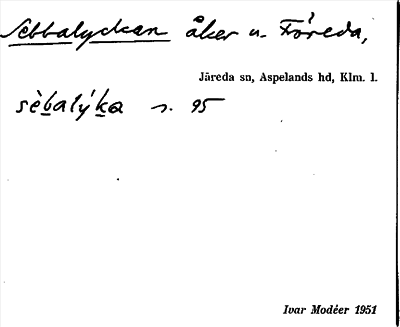 Sebbalyckan åker u. Föreda,
Järeda sn, Aspelands hd, Klm. l.
sèbalýka s. 95
Ivar Modéer 1951